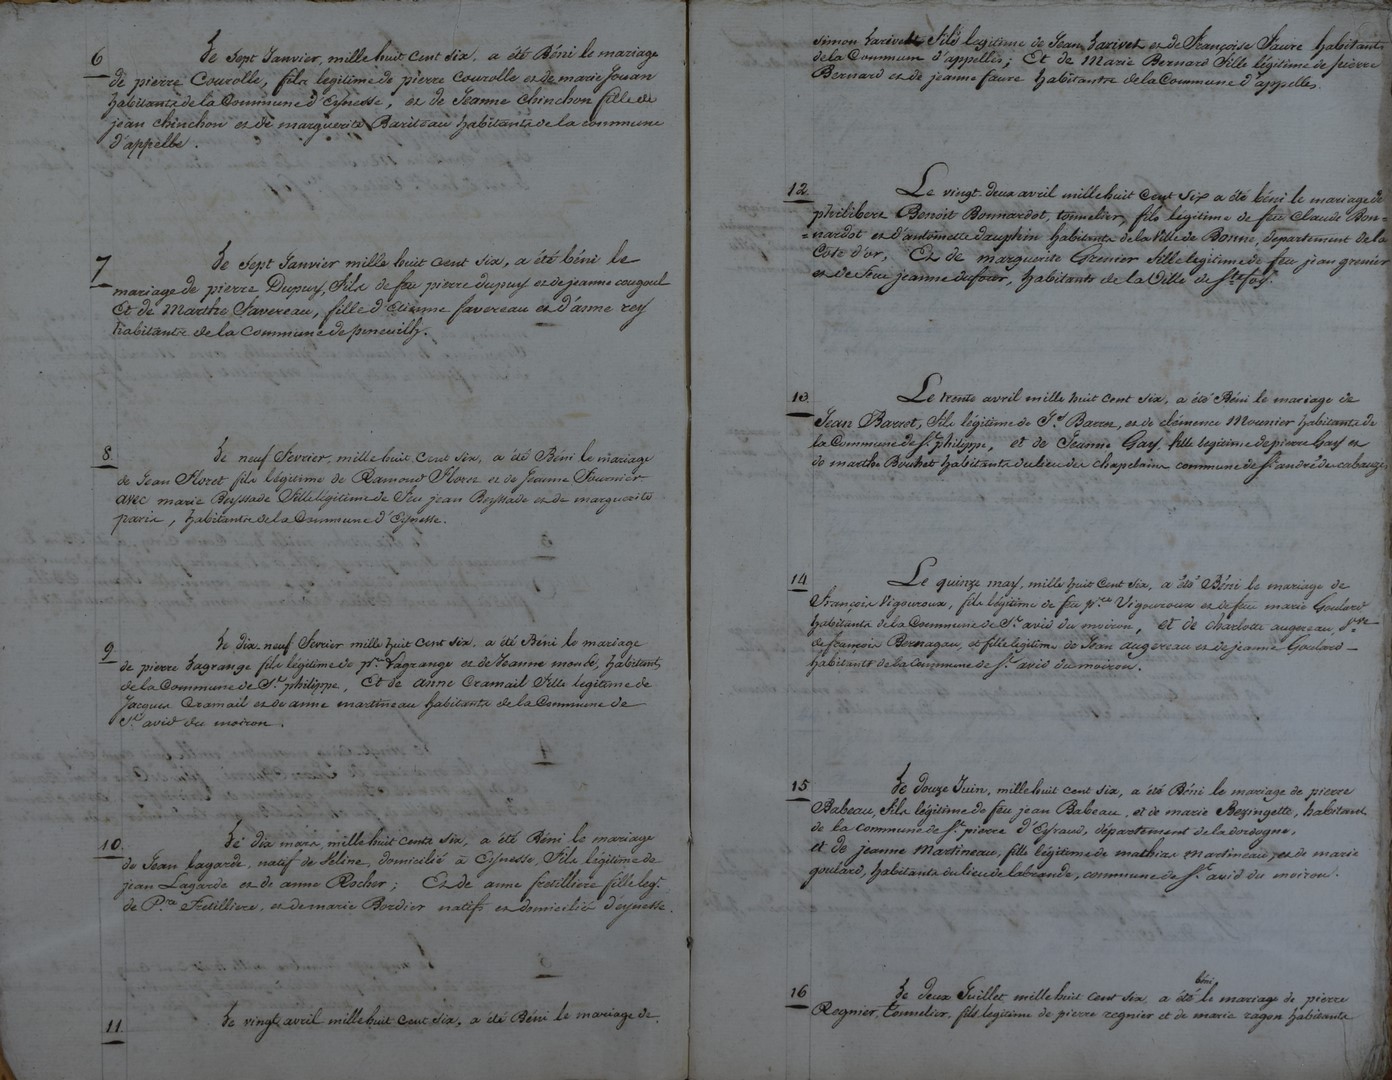 6
Le Sept Janvier, mille huit cent six, a été Béni le mariage
de pierre Courolle, fils legitime de pierre Courolle et de marie Jouan
habitants de la Commune d'Eynesse, et de Jeanne Chinchon fille de
jean chinchon et de marguerite Bariteau habitants de la commune
d'appelle.
7
Le Sept Janvier mille huit cent six, a été béni le
mariage de pierre Dupuy, fils de feu pierre dupuy et de jeanne cougoul
Et de Marthe Favereau, fille d'Etienne favereau et d'anne rey
habitants de la Commune de pineuilh.
8
Le neuf fevrier, mille huit cent six, a été Béni le mariage
de Jean Floret fils légitime de Ramond Floret et de Jeanne Fournier
avec marie Beyssade fille légitime de feu jean Beyssade et de marguerite
paris, habitants de la Commune d'Eynesse.
9
Le dix neuf fevrier mille huit cent six, a été Béni le mariage
de pierre Lagrange fils légitime de pre Lagrange et de Jeanne habitants
de la Commune de St philippe, Et de anne Cramail fille legitime de
Jacques Cramail et de anne martineau habitants de la Commune de
St avid du moiron.
10
Le dix mars, mille huit cents six, a été Béni le mariage
de Jean Lagarde, natif de domicilié a Eynesse, fils legitime de
jean Lagarde et de anne Rocher; Et de anne fretillière fille legt.
de Pre Fretilliere, et de marie Bordier natifs et domicilié d'eynesse.
11
Le vingt avril mille huit cent six, a été Béni le mariage de
simon Larivet fils legitime de Jean Larivet et de Françoise Faure habitants
de la Commun d'appelles; Et de Marie Bernard fille légitime de pierre
Bernard et de jeanne faure habitants de la Commune d'appelles
12
Le vingt-deux avril mille huit cent six a été béni le mariage de
philibert Benoit Bonnardot, tonnelier, fils legitime de feu Claude Bon=
=nardot et d'antoinette dauphin habitants de la ville de Bonne, département de la
Côte d'or, Et de marguerite Grenier fille legitime de feu jean grenier
et de feue jeanne dufour, habitants de la Ville de Ste foy.
13
Le trente avril mille huit cent six, a été Béni le mariage de
Jean Barret, fils légitime de Jn Barret, et de clémence Mounier habitants de
la Commune de St philippe, et de Jeanne Gay, fille legitime de pierre Gay et
de marthe Bouhet habitants du lieu du chapelain commune de St andré de cabauze
14
Le quinze may, mille huit cent six, a été Béni le mariage de
François Vigouroux, fils légitime de feu pre Vigouroux et de feu marie Goulard
habitants de la Commune de St avid du moiron, et de charlotte augereau, Vve
de francois Bernagau, et fille legitime de Jean augereau et de jeanne Goulard —
habitants de la Commune de St avid du moiron.
15
Le douze Juin, mille huit cent six, a été Béni le mariage de pierre
Babeau, fils légitime de feu jean Babeau, et de marie Bezingette, habitant
de la commune de St pierre d'Eyraud, département de la dordogne,
et de jeanne Martineau, fille légitime de mathias martineau, et de marie
goulard, habitants du lieu de labrande, commune de St avid du moiron.
16
Le deux Juillet mille huit cent six, a été béni le mariage de pierre
Regnier, tonnelier, fils legitime de pierre regnier et de marie ragon habitants